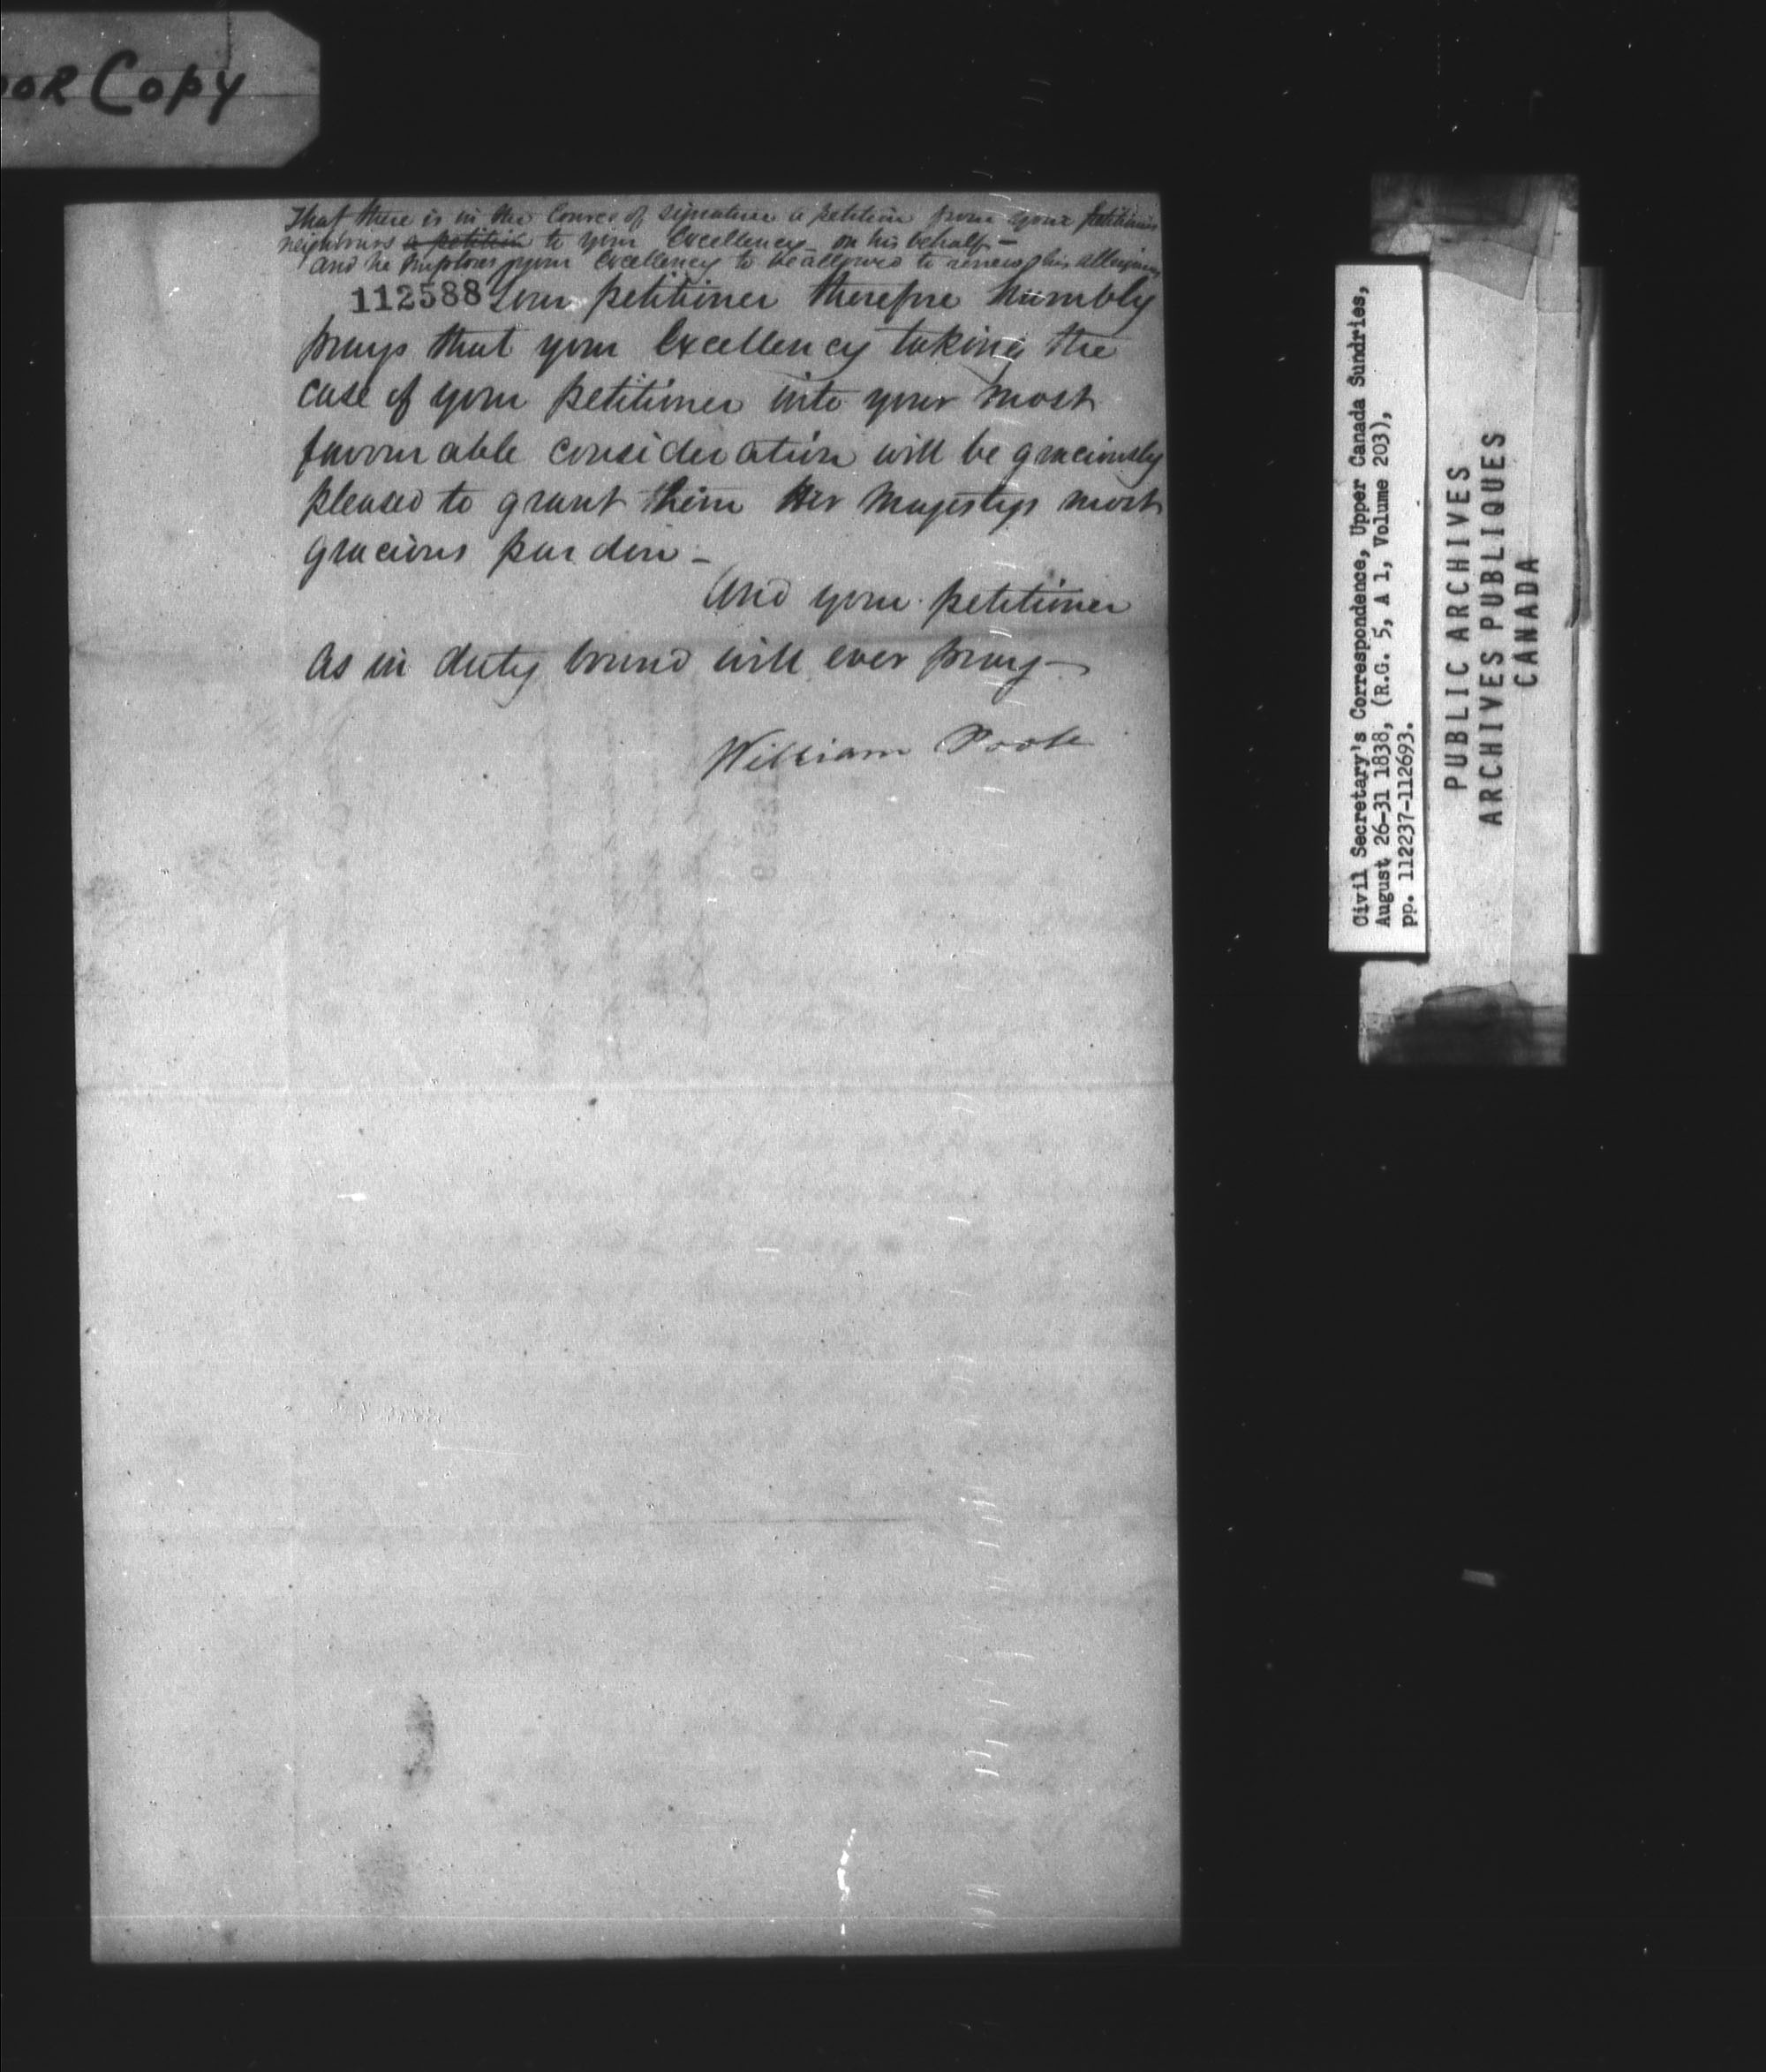 OOR COPY
That there is in the Course of signature a petition from your petitioners
neighbours a petition to your Excellency on his behalf —
and he implores your Excellency to be allowed to renew his allegiance
112588 Your petitioner therefore humbly
prays that your Excellency taking the
case of your petitioner into your most
favourable consideration will be graciously
pleased to grant him Her Majestys most
gracious pardon —
And your petitioner
As in duty bound will ever pray —
William Poole
Civil Secretary's Correspondence, Upper Canada Sundries,
August 26-31 1838, (R.G. 5, A 1, Volume 203),
pp. 112237-112693.
PUBLIC ARCHIVES
ARCHIVES PUBLIQUES
CANADA